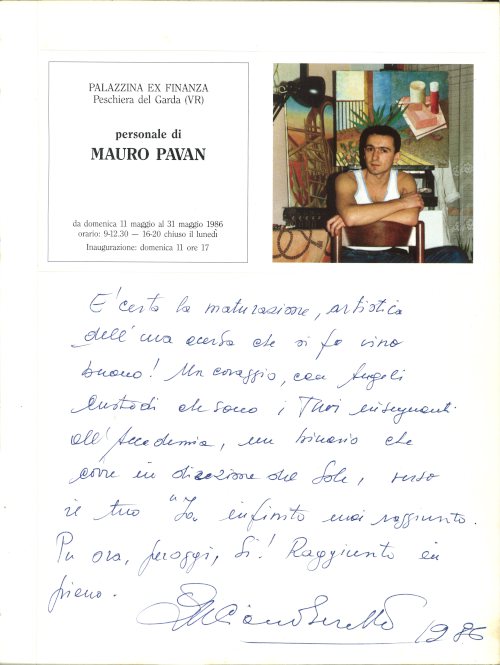 PALAZZINA EX FINANZA
Peschiera del Garda (VR)
personale di
MAURO PAVAN
da domenica 11 maggio al 31 maggio 1986
orario: 9-12.30 — 16-20 chiuso il lunedì
Inaugurazione: domenica 11 ore 17
E' certa la maturazione, artistica
dell'uva acerba che si fa vino
buono! Un coraggio, con Angeli
Custodi che sono i Tuoi insegnanti
all'Accademia, un binario che
corre in direzione del Sole, verso
il tuo "Io" infinito mai raggiunto.
Per ora, per oggi, Sì! Raggiunto in
pieno.
1986